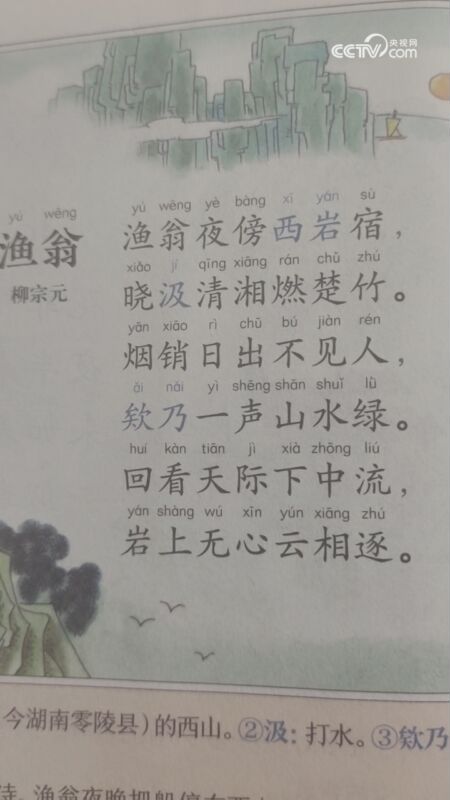 CCTV 央视网
com
yú wēng
渔翁
柳宗元
yú wēng yè bàng xī yán sù
渔翁夜傍西岩宿，
xiǎo jí qīng xiāng rán chǔ zhú
晓汲清湘燃楚竹。
yān xiāo rì chū bú jiàn rén
烟销日出不见人，
ǎi nǎi yì shēng shān shuǐ lǜ
欸乃一声山水绿。
huí kàn tiān jì xià zhōng liú
回看天际下中流，
yán shàng wú xīn yún xiāng zhú
岩上无心云相逐。
今湖南零陵县）的西山。②汲：打水。③欸乃
渔翁夜晚把船停在西